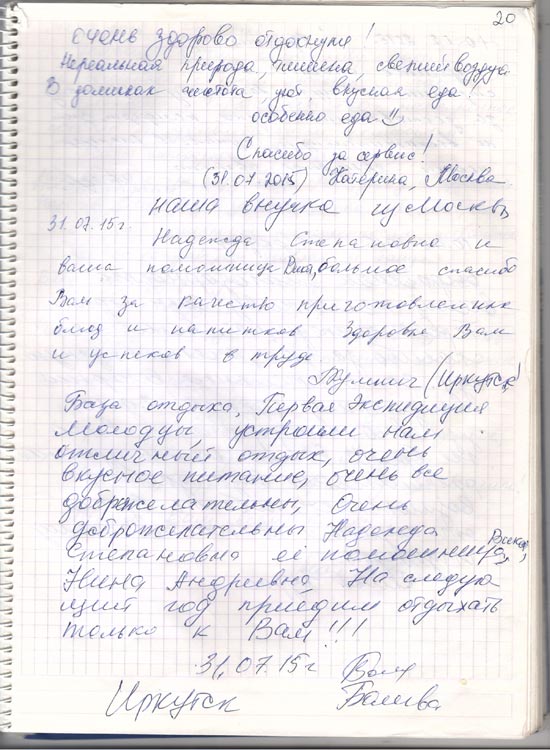 20
очень здорово отдохнули!
Нереальная природа, тишина, свежий воздух.
В домиках чистота, уют, вкусная еда!
особенно еда
Спасибо за сервис!
(31.07.2015) Катерина, Москва.
наша внучка из Москвы
31.07.15г.
Надежда Степановна и
ваша помощница большое спасибо
Вам за качество приготовленных
блюд и напитков Здоровья Вам
и успехов в труде
(Иркутск)
База отдыха, Первая Экспидиция
Молодцы, устроили нам
отличный отдых, очень
вкусное питание, очень все
доброжелательны, Очень
доброжелательны Надежда
Степановна её помошница, Вика,
Нина Андреевна, На следую
щий год приедим отдыхать
только к Вам!!!
31.07.15г
Иркутск